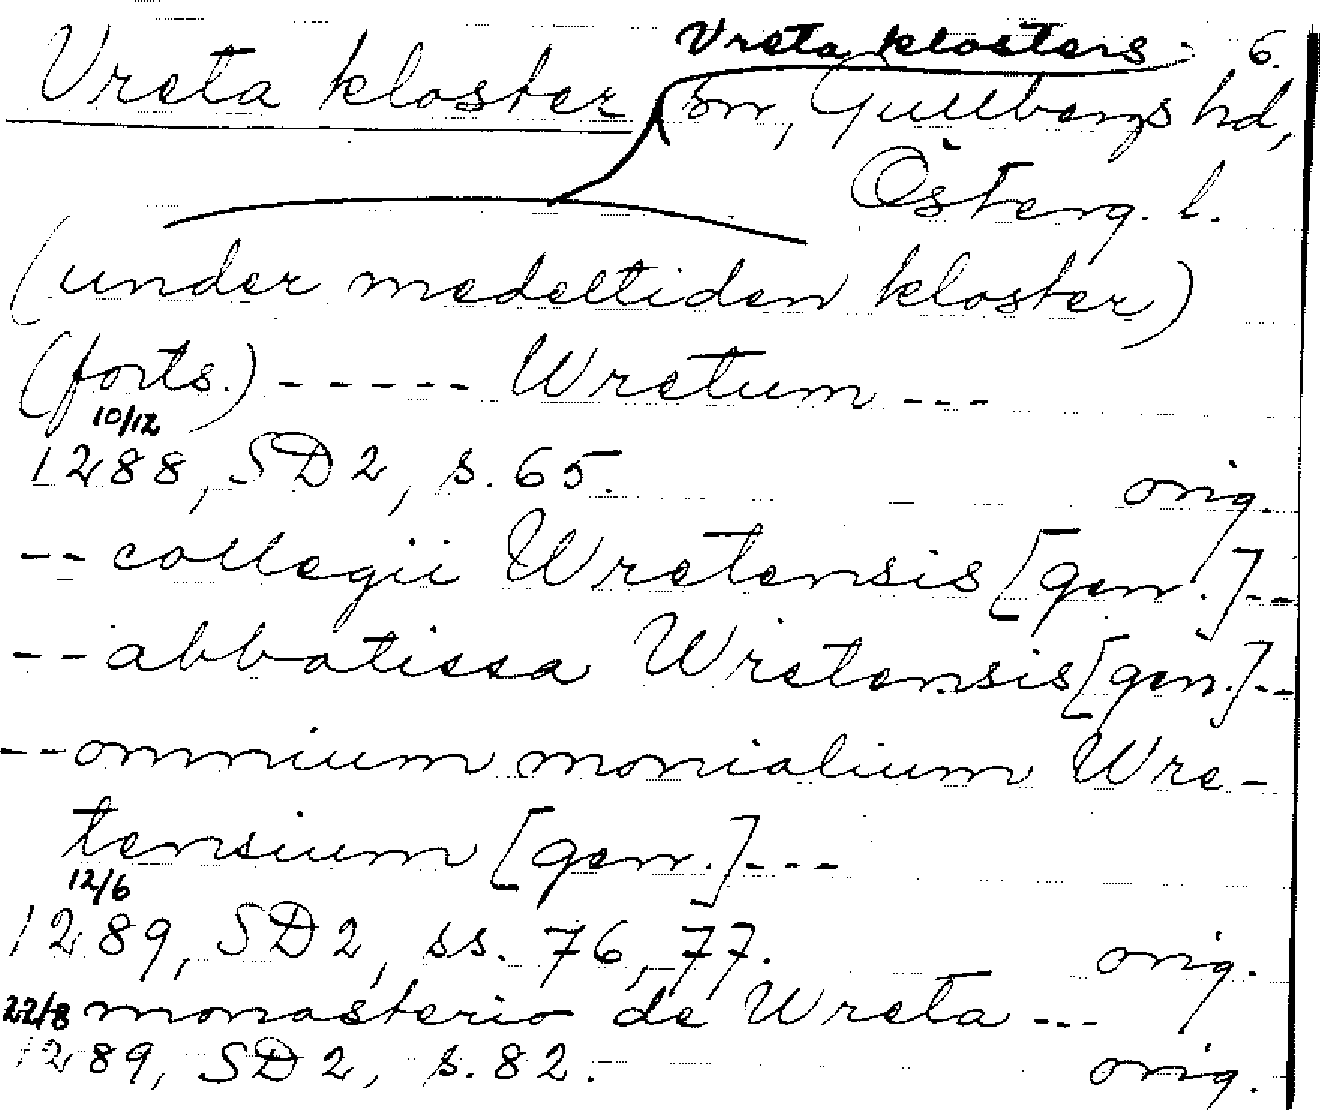 Vreta klosters 6.
Vreta kloster sn, Gullbergs hd,
Österg. l.
(under medeltiden kloster)
(forts.) ----- Wretum ---
10/12
1288, SD 2, s. 65. orig.
-- collegii Wretensis [gen.] --
-- abbatissa Wretensis [gen.] --
-- omnium monialium Wre-
tensium [gen.] ---
12/6
1289, SD 2, ss. 76, 77. orig.
22/8 monasterio de Wreta ---
1289, SD 2, s. 82. orig.